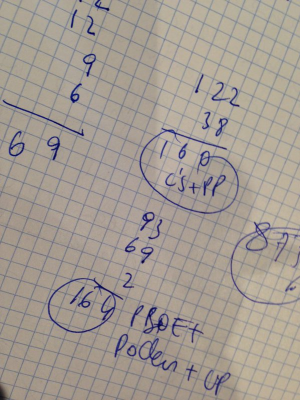 12
9
6
69
122
38
160
C's+PP
93
69
2
164
PSOE+
Podem + UP